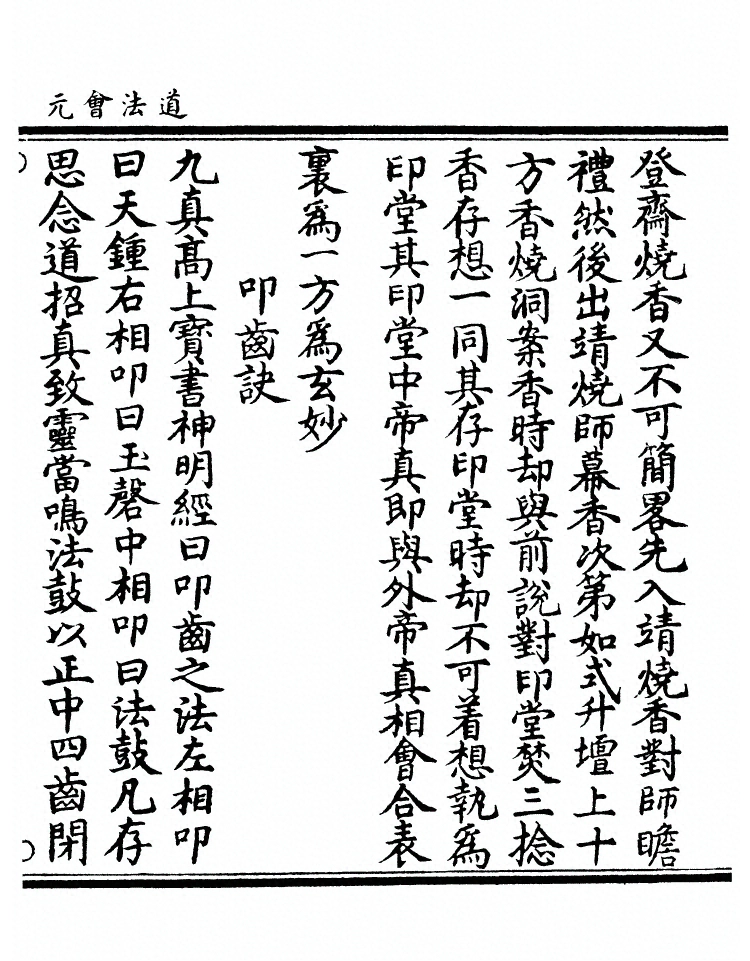 道法會元
登齋燒香又不可簡畧先入靖燒香對師瞻
禮然後出靖燒師幕香次第如式升壇上十
方香燒洞案香時却與前說對印堂焚三捻
香存想一同其存印堂時却不可着想執爲
印堂其印堂中帝真即與外帝真相會合表
裏爲一方爲玄妙
叩齒訣
九真高上寶書神明經曰叩齒之法左相叩
曰天鍾右相叩曰玉磬中相叩曰法鼓凡存
思念道招真致靈當鳴法鼓以正中四齒閉